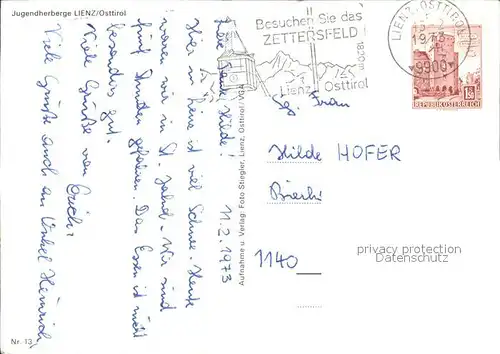 Jugendherberge LIENZ/Osttirol
Liebe Tante Hilde!
Hier in Lienz ist viel Schnee. Heute
waren wir in St. Jakob. Wir sind
fünf Stunden gefahren. Das Essen ist nicht
besonders gut.
Viele Grüße von
Erich.
Viele Grüße auch an Onkel Heinrich
11.2.1973
Aufnahme u. Verlag: Foto Stiegler, Lienz, Osttirol/VGA
Nr. 13
Besuchen Sie das
ZETTERSFELD!
1820m
Lienz Osttirol
LIENZ, OSTTIROL
1973
9900
REPUBLIK ÖSTERREICH
1.50
Frau
Hilde HOFER
1140
privacy protection
Datenschutz